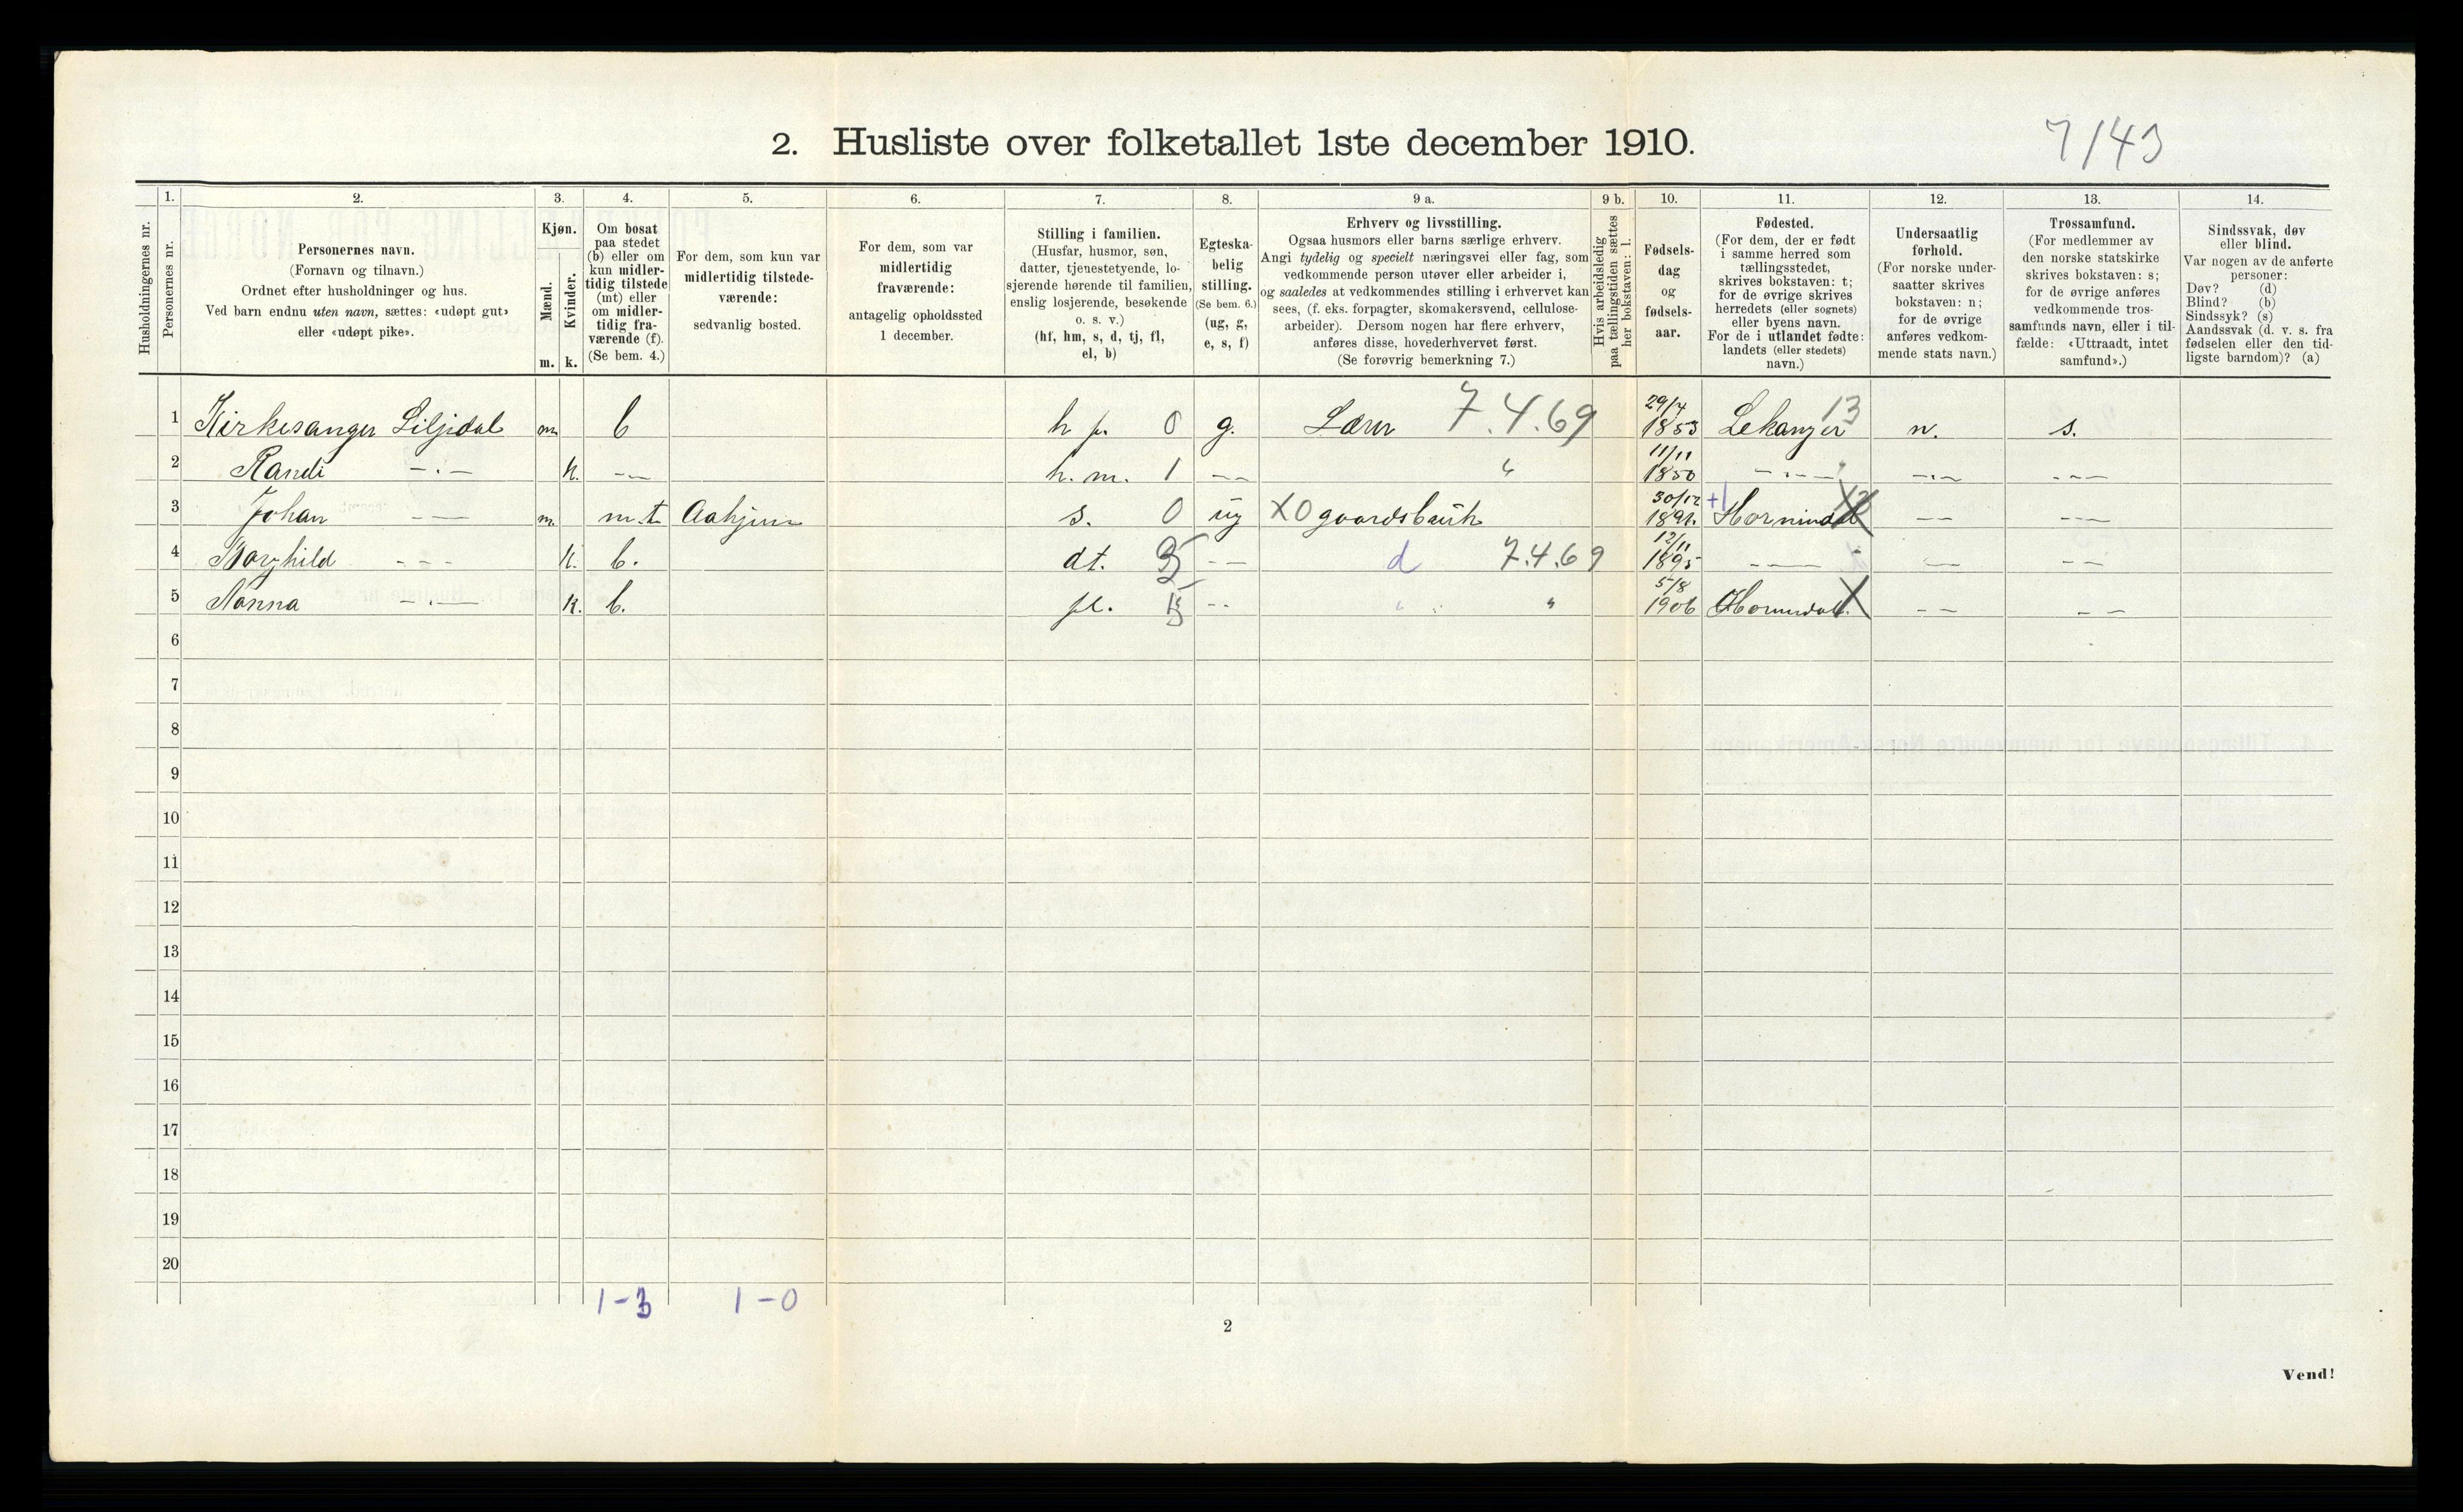 2. Husliste over folketallet 1ste december 1910.
7/43
Husholdningernes nr.
1.
Personernes nr.
2.
Personernes navn.
(Fornavn og tilnavn.)
Ordnet efter husholdninger og hus.
Ved barn endnu uten navn, sættes: «udøpt gut»
eller «udøpt pike».
3.
Kjøn.
Mænd.
m.
Kvinder.
k.
4.
Om bosat
paa stedet
(b) eller om
kun midler-
tidig tilstede
(mt) eller
om midler-
tidig fra-
værende (f).
(Se bem. 4.)
5.
For dem, som kun var
midlertidig tilstede-
værende:
sedvanlig bosted.
6.
For dem, som var
midlertidig
fraværende:
antagelig opholdssted
1 december.
7.
Stilling i familien.
(Husfar, husmor, søn,
datter, tjenestetyende, lo-
sjerende hørende til familien,
enslig losjerende, besøkende
o. s. v.)
(hf, hm, s, d, tj, fl,
el, b)
8.
Egteska-
belig
stilling.
(Se bem. 6.)
(ug, g,
e, s, f)
9 a.
Erhverv og livsstilling.
Ogsaa husmors eller barns særlige erhverv.
Angi tydelig og specielt næringsvei eller fag, som
vedkommende person utøver eller arbeider i,
og saaledes at vedkommendes stilling i erhvervet kan
sees, (f. eks. forpagter, skomakersvend, cellulose-
arbeider). Dersom nogen har flere erhverv,
anføres disse, hovederhvervet først.
(Se forøvrig bemerkning 7.)
9 b.
Hvis arbeidsledig
paa tællingstiden sættes
her bokstaven: l.
10.
Fødsels-
dag
og
fødsels-
aar.
11.
Fødested.
(For dem, der er født
i samme herred som
tællingsstedet,
skrives bokstaven: t;
for de øvrige skrives
herredets (eller sognets)
eller byens navn.
For de i utlandet fødte:
landets (eller stedets)
navn.)
12.
Undersaatlig
forhold.
(For norske under-
saatter skrives
bokstaven: n;
for de øvrige
anføres vedkom-
mende stats navn.)
13.
Trossamfund.
(For medlemmer av
den norske statskirke
skrives bokstaven: s;
for de øvrige anføres
vedkommende tros-
samfunds navn, eller i til-
fælde: «Uttraadt, intet
samfund».)
14.
Sindssvak, døv
eller blind.
Var nogen av de anførte
personer:
Døv? (d)
Blind? (b)
Sindssyk? (s)
Aandssvak (d. v. s. fra
fødselen eller den tid-
ligste barndom)? (a)
1 Kirkesanger Liljedal m. b h f. 0 g. Lærer 7.4.69 29/7 1853 Lekanger 13 n. s.
2 Randi -"- k. -"- h. m. 1 -"- " 11/11 1850 -"- -"- -"-
3 Johan -"- m. m t s. 0 ug X0 gaardsbruk 30/12 1891. +1 Hornindal -"- -"-
4 Borghild -"- k. b. dt. -"- d 7.4.69 12/11 1895 -"- -"- -"-
5 Nanna -"- k. b. fl. -"- " " 5/8 1906 Hornindal. -"- -"-
6
7
8
9
10
11
12
13
14
15
16
17
18
19
20
1-3 1-0
2
Vend!